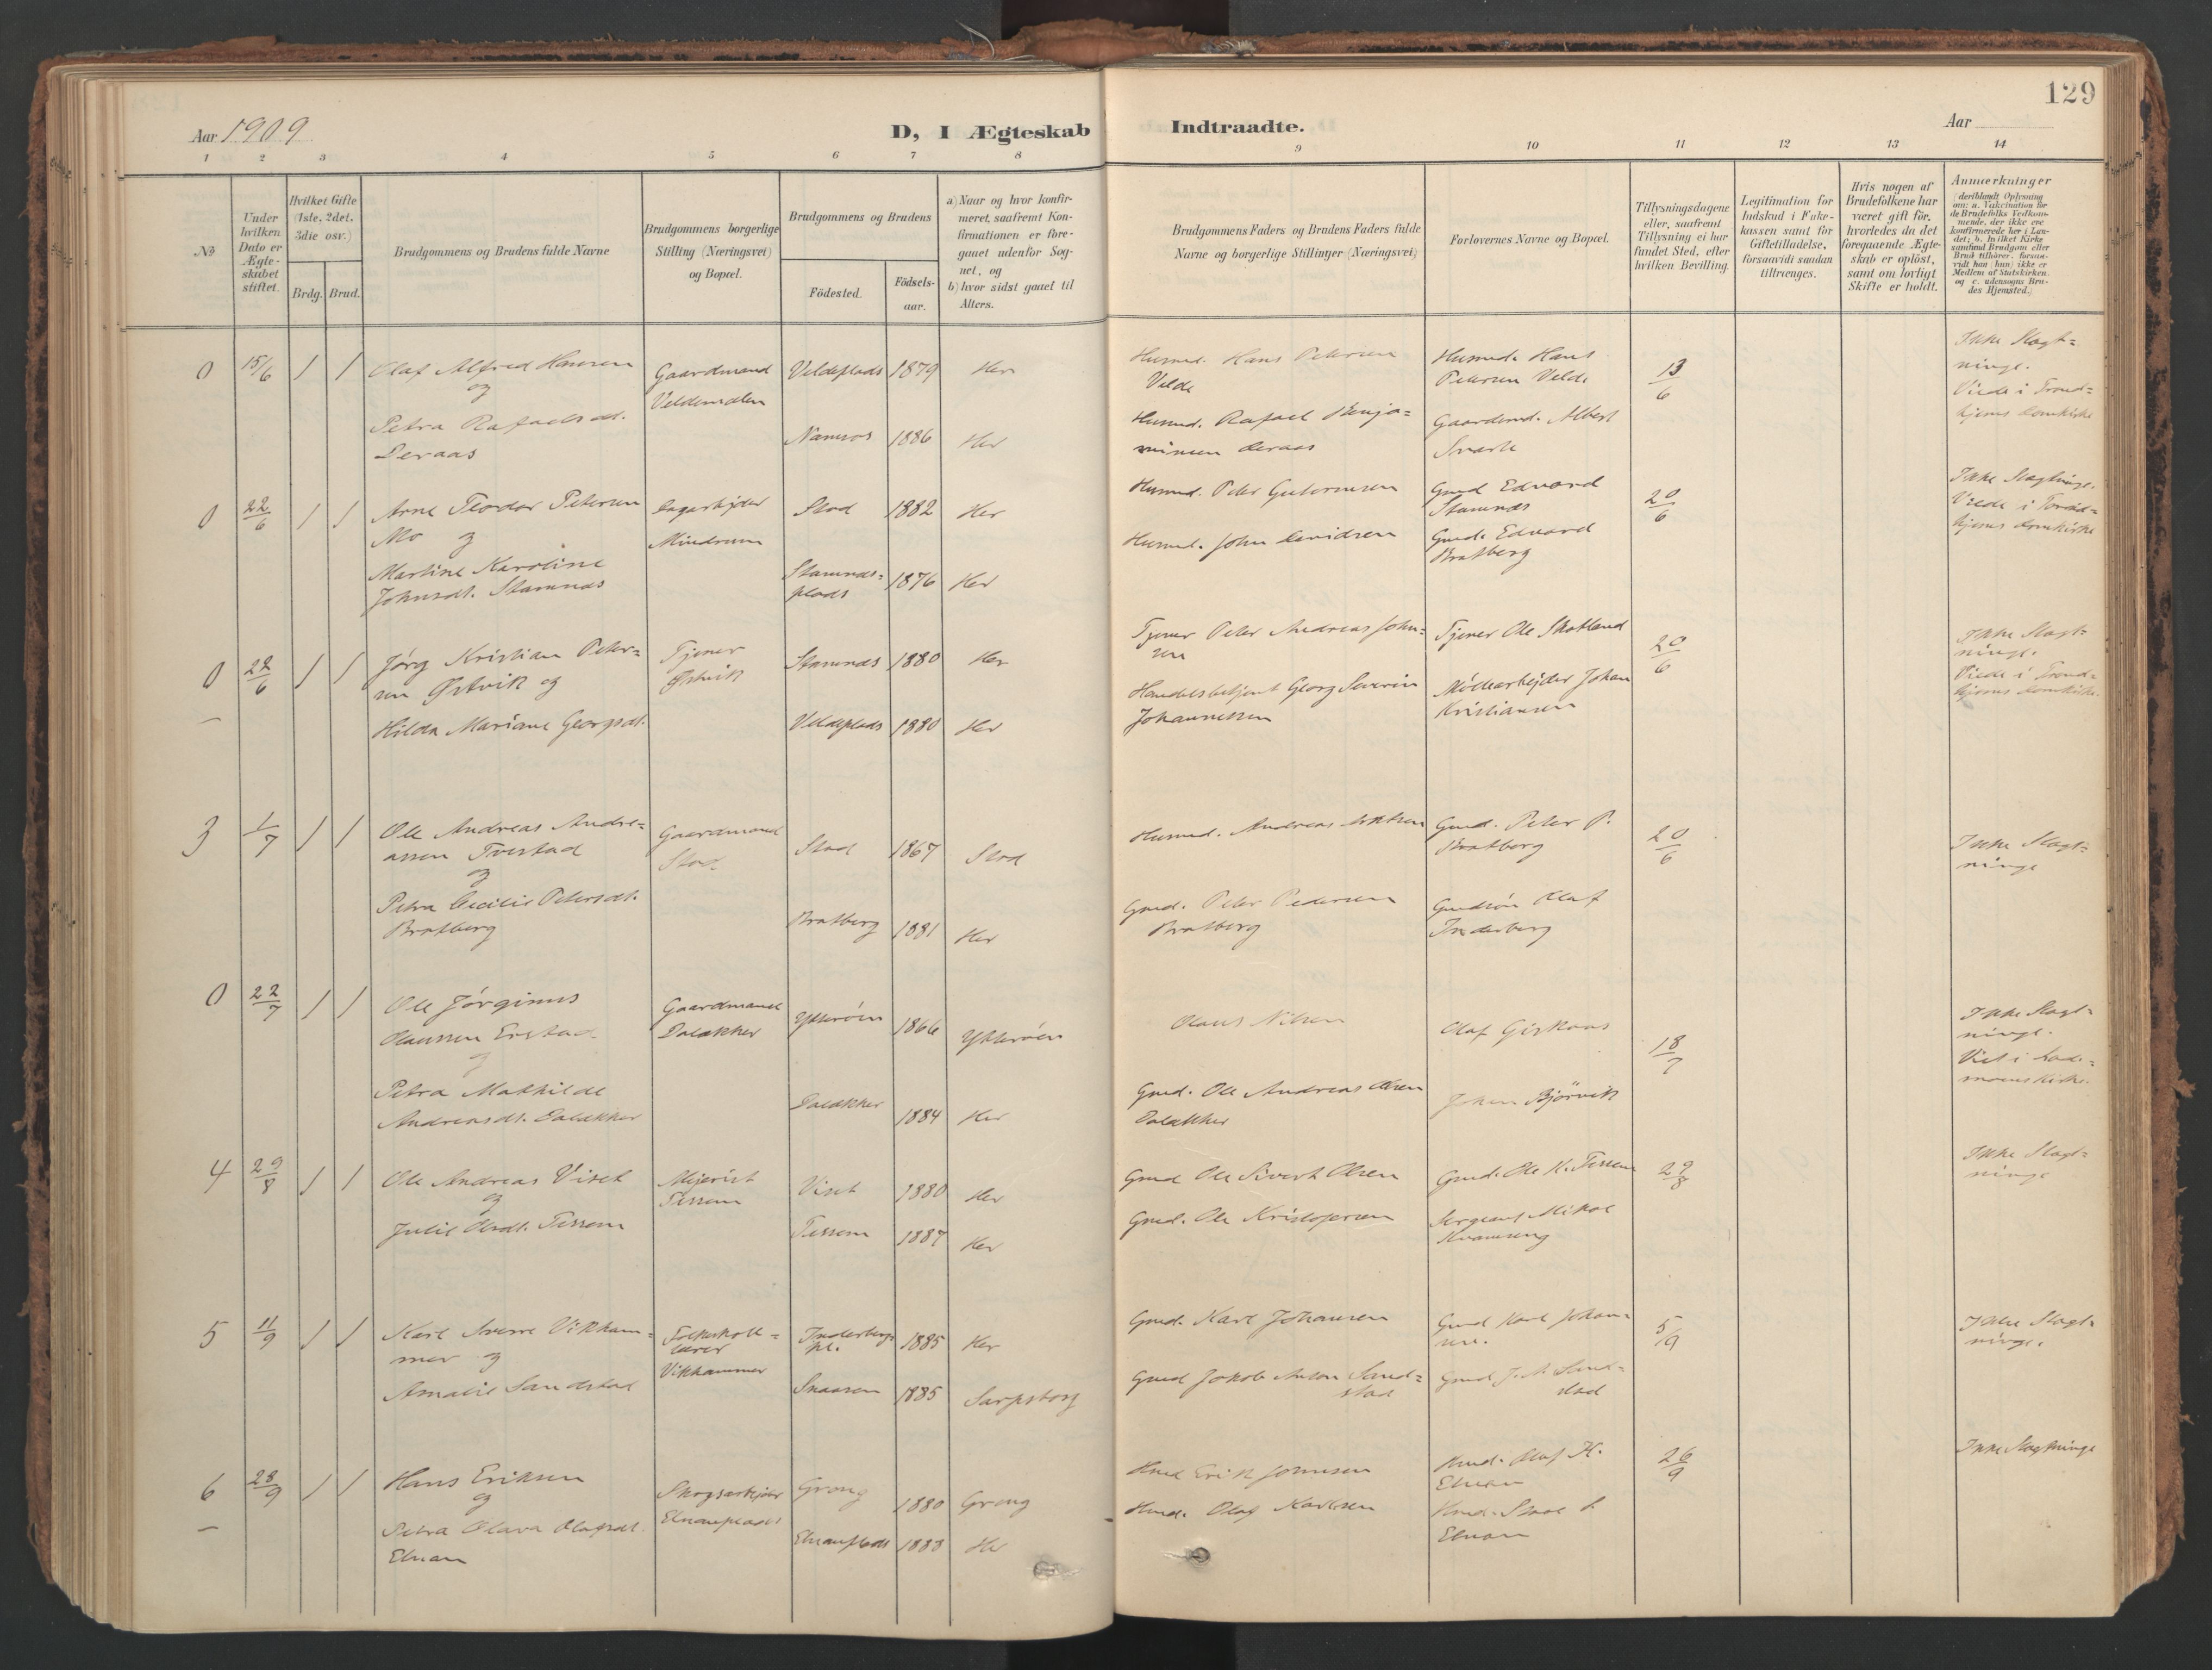 129
Aar 1909
D, I Ægteskab
Indtraadte.
Aar
1 2 3 4 5 6 7 8 9 10 11 12 13 14
No
Under hvilken Dato er Ægteskabet stiftet.
Hvilket Gifte (1ste, 2det, 3die osv.)
Brdg. Brud.
Brudgommens og Brudens fulde Navne
Brudgommens borgerlige Stilling (Næringsvei) og Bopæl.
Brudgommens og Brudens
Födested.
Födsels-aar.
a) Naar og hvor konfirmeret, saafremt Konfirmationen er foregaaet udenfor Sognet, og
b) hvor sidst gaaet til Alters.
Brudgommens Faders og Brudens Faders fulde Navne og borgerlige Stillinger (Næringsvei)
Forlovernes Navne og Bopæl.
Tillysningsdagene eller, saafremt Tillysning ei har fundet Sted, efter hvilken Bevilling.
Legitimation for Indskud i Enkekassen samt for Giftetilladelse, forsaavidt saadan tiltrænges.
Hvis nogen af Brudefolkene har været gift för, hvorledes da det foregaaende Ægteskab er oplöst, samt om lovligt Skifte er holdt.
Anmærkninger
0 15/6 1 1 Olaf Alfred Hansen
og
Petra Rafaelsdt.
Deraas
Gaardmand
Veldemalen
Veldeplads 1879 Her
Namsos 1886 Her
Husmd. Hans Petersen
Velde
Husmd. Rafael Benja=
minsen Deraas
Husmd. Hans
Petersen Velde
Gaardmd. Albert
13/6
Ikke Slægt=
ninge.
Viede i Trond=
hjems Domkirke
0 22/6 1 1 Arne Teodor Petersen
Mo og
Martine Karoline
Johnsdt. Stamnæs
Sagarbejder
Mindrum
Stod 1882 Her
Stamnæs=
plads 1876 Her
Husmd. Peter Gulormsen
Husmd. John Davidsen
Gmd Edvard
Stamnæs
Gmd. Edvard
Bratberg
20/6
Ikke Slægtninge.
Viede i Trond=
hjems Domkirke
0 22/6 1 1 Jørg Kristian Peter=
sen Østvik og
Hilda Mariane Georgsdt.
Tjener
Østvik
Stamnæs 1880 Her
Veldeplads 1880 Her
Tjener Peter Andreas John=
sen
Handelsbetjent Georg Severin
Johannessen
Tjener Ole Skotland
Møllearbejder Johan
Kristiansen
20/6
Ikke Slægt=
ninge.
Viede i Trond=
hjems Domkirke.
3 1/7 1 1 Ole Andreas Andre=
assen Tvestad
og
Petra Cecilie Petersdt.
Bratberg
Gaardmand
Stod
Stod 1867 Stod
Bratberg 1881 Her
Husmd. Andreas
Gmd. Peter Pedersen
Bratberg
Gmd. Peter P.
Bratberg
Gmdsøn Olaf
Inderberg
20/6
Ikke Slægt=
ninge
0 22/7 1 1 Ole Jørginus
Olaussen Erstad
og
Petra Mathilde
Andreasdt. Dalækker
Gaardmand
Dalækker
Ytterøen 1866 Ytterøen
Dalækker 1884 Her
Olaus Nilsen
Gmd. Ole Andreas Olsen
Dalækker
Olaf Giskaas
Johan Bjørvik
18/7
Ikke Slægt=
ninge.
4 29/8 1 1 Ole Andreas Viset
og
Julie Olsdt. Tessem
Mejerist
Tessem
Viset 1880 Her
Tessem 1887 Her
Gmd Ole Sivert Olsen
Gmd. Ole Kristofersen
Gmd. Ole K. Tessem
Sergeant Mikal
Kvamseng
29/8
Ikke Slægt=
ninge
5 11/9 1 1 Karl Sverre Vikham=
mer og
Amalie Sandstad
Folkeskole=
lærer
Vikhammer
Inderberg=
pl. 1885 Her
Snaasen 1885 Sarpsborg
Gmd. Karl Johansen
Gmd Jakob Anton Sand=
stad
Gmd Karl Johan=
sen.
Gmd J. A. Sand=
stad
5/9
Ikke Slægt=
ninge.
6 28/9 1 1 Hans Eriksen
og
Petra Olava Olafsdt.
Elnan
Skogsarbejder
Elnanplads
Grong 1880 Grong
Elnanplads 1883 Her
Hmd Erik Johnsen
Hmd. Olaf Karlsen
Hmd. Olaf K.
Elnan
Elnan
26/9
Ikke Slægtninge